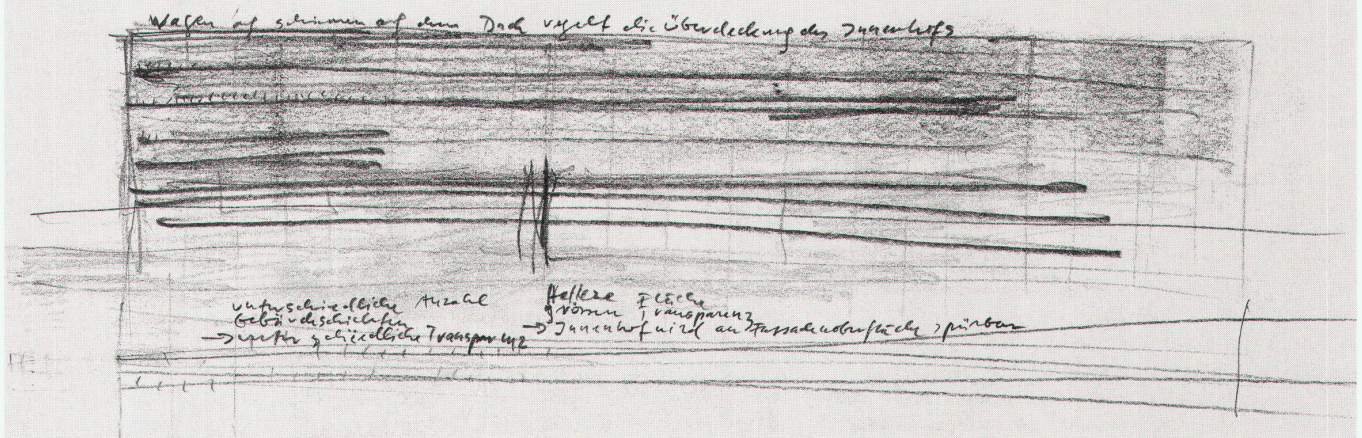 Wagen auf schienen auf dem Dach regelt die Überdeckung des Innenhofs
unterschiedliche Anzahl
Gebäudeschichten
→ unterschiedliche Transparenz
Hellere Fläche
grössere Transparenz
→ Innenhof wird an Fassadenoberfläche spürbar